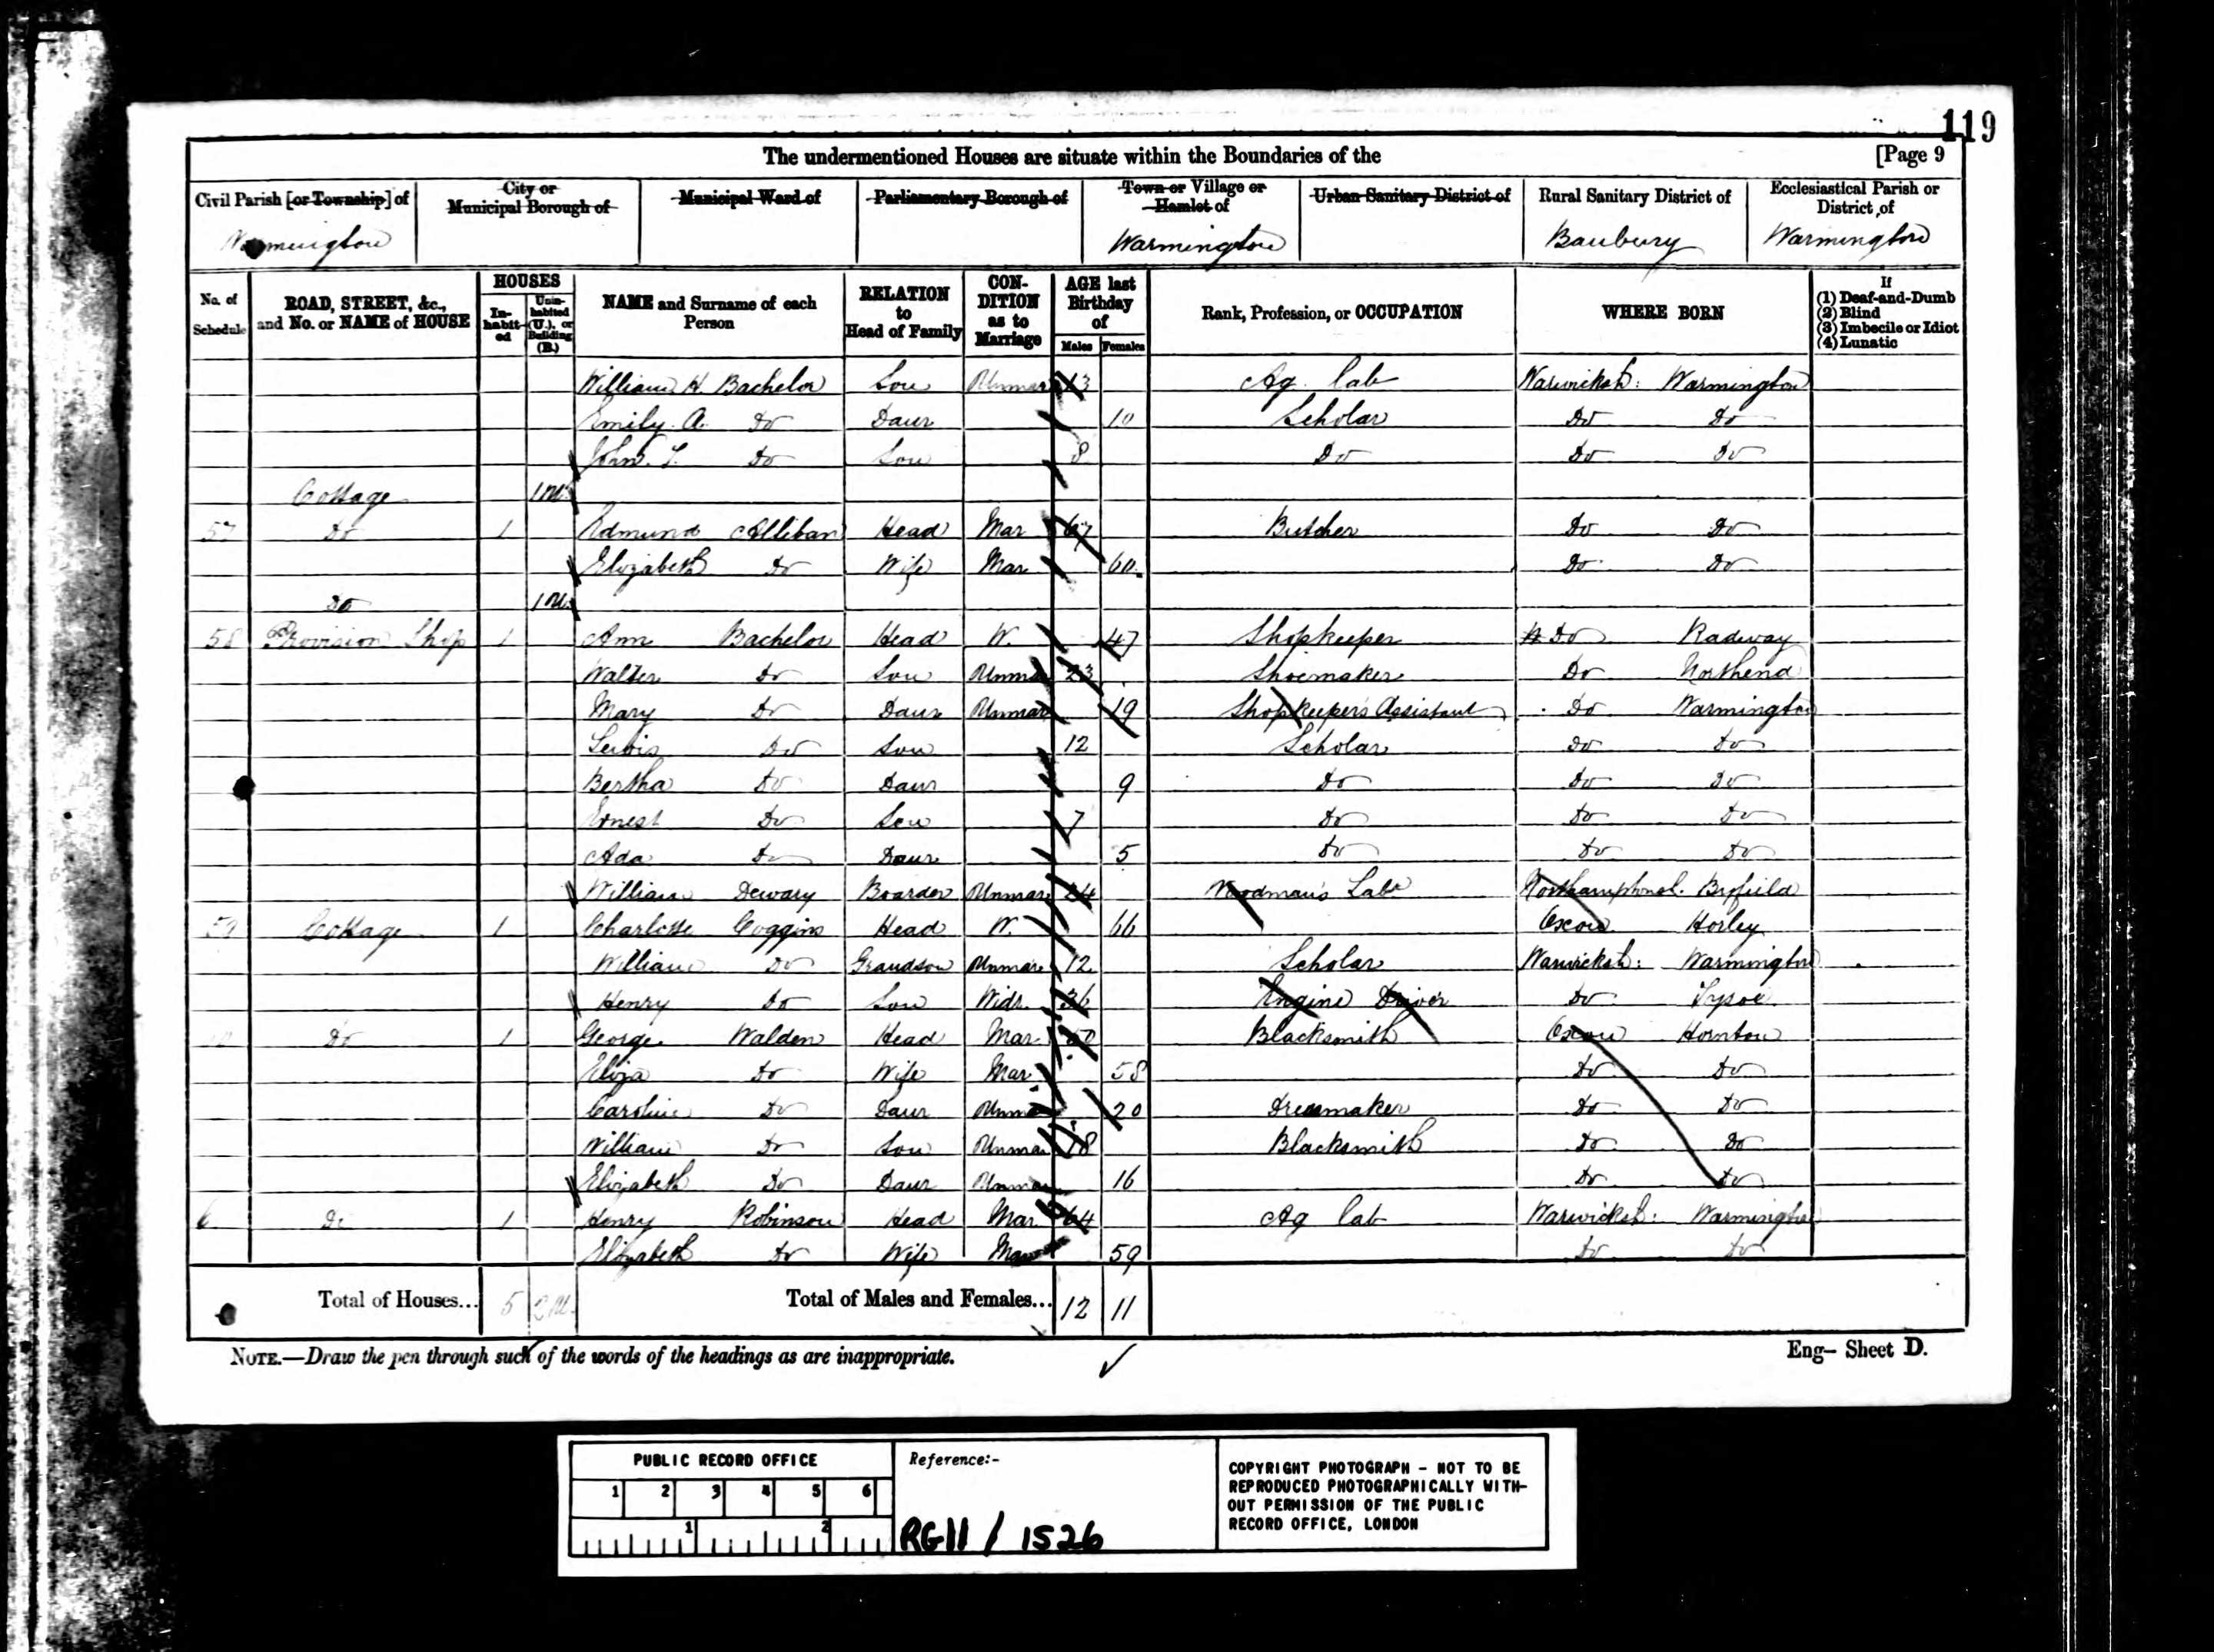 119
The undermentioned Houses are situate within the Boundaries of the [Page 9
Civil Parish [or Township] of
City or Municipal Borough of
Municipal Ward of
Parliamentary Borough of
Town or Village or Hamlet of
Urban Sanitary District of
Rural Sanitary District of
Ecclesiastical Parish or District of
Warmington Warmington Banbury Warmington
No. of Schedule
ROAD, STREET, &c., and No. or NAME of HOUSE
HOUSES
In-habit-ed
Unin-habited (U.), or Building (B.)
NAME and Surname of each Person
RELATION to Head of Family
CON-DITION as to Marriage
AGE last Birthday of
Males Females
Rank, Profession, or OCCUPATION
WHERE BORN
If
(1) Deaf-and-Dumb
(2) Blind
(3) Imbecile or Idiot
(4) Lunatic
William H. Bachelor Son Unmar 13 Ag. Lab Warwicksh: Warmington
Emily A. Do Daur 10 Scholar Do Do
John. Do Son 8 Do Do Do
Cottage 1 U.
57 Do 1 Edmund Alliban Head Mar 67 Butcher Do Do
Elizabeth Do Wife Mar 60 Do Do
Do 1 U.
58 Provision Shop 1 Ann Bachelor Head W. 47 Shopkeeper Do Radway
Walter Do Son Unmar 23 Shoemaker Do Northend
Mary Do Daur Unmar 19 Shopkeeper's Assistant Do Warmington
Lewis Do Son 12 Scholar Do Do
Bertha Do Daur 9 Do Do Do
Ernest Do Son 7 Do Do Do
Ada Do Daur 5 Do Do Do
William Dewary Boarder Unmar 24 Woodman's Labr Northamptonsh. Byfield
59 Cottage 1 Charlotte Coggins Head W. 66 Oxon Horley
William Do Grandson Unmar 12 Scholar Warwicksh: Warmington
Henry Do Son Widr. 36 Engine Driver Do Tysoe
Do 1 George Walden Head Mar 50 Blacksmith Oxon Hornton
Eliza Do Wife Mar 58 Do Do
Caroline Do Daur Unmar 20 Dressmaker Do Do
William Do Son Unmar 18 Blacksmith Do Do
Elizabeth Do Daur Unmar 16 Do Do
6 Do 1 Henry Robinson Head Mar 64 Ag Lab Warwicksh: Warmington
Elizabeth Do Wife Mar 59 Do Do
Total of Houses... 5 2 U. Total of Males and Females... 12 11
NOTE.—Draw the pen through such of the words of the headings as are inappropriate.
Eng— Sheet D.
PUBLIC RECORD OFFICE
1 2 3 4 5 6
1 2
Reference:-
RG11 / 1526
COPYRIGHT PHOTOGRAPH - NOT TO BE
REPRODUCED PHOTOGRAPHICALLY WITH-
OUT PERMISSION OF THE PUBLIC
RECORD OFFICE, LONDON